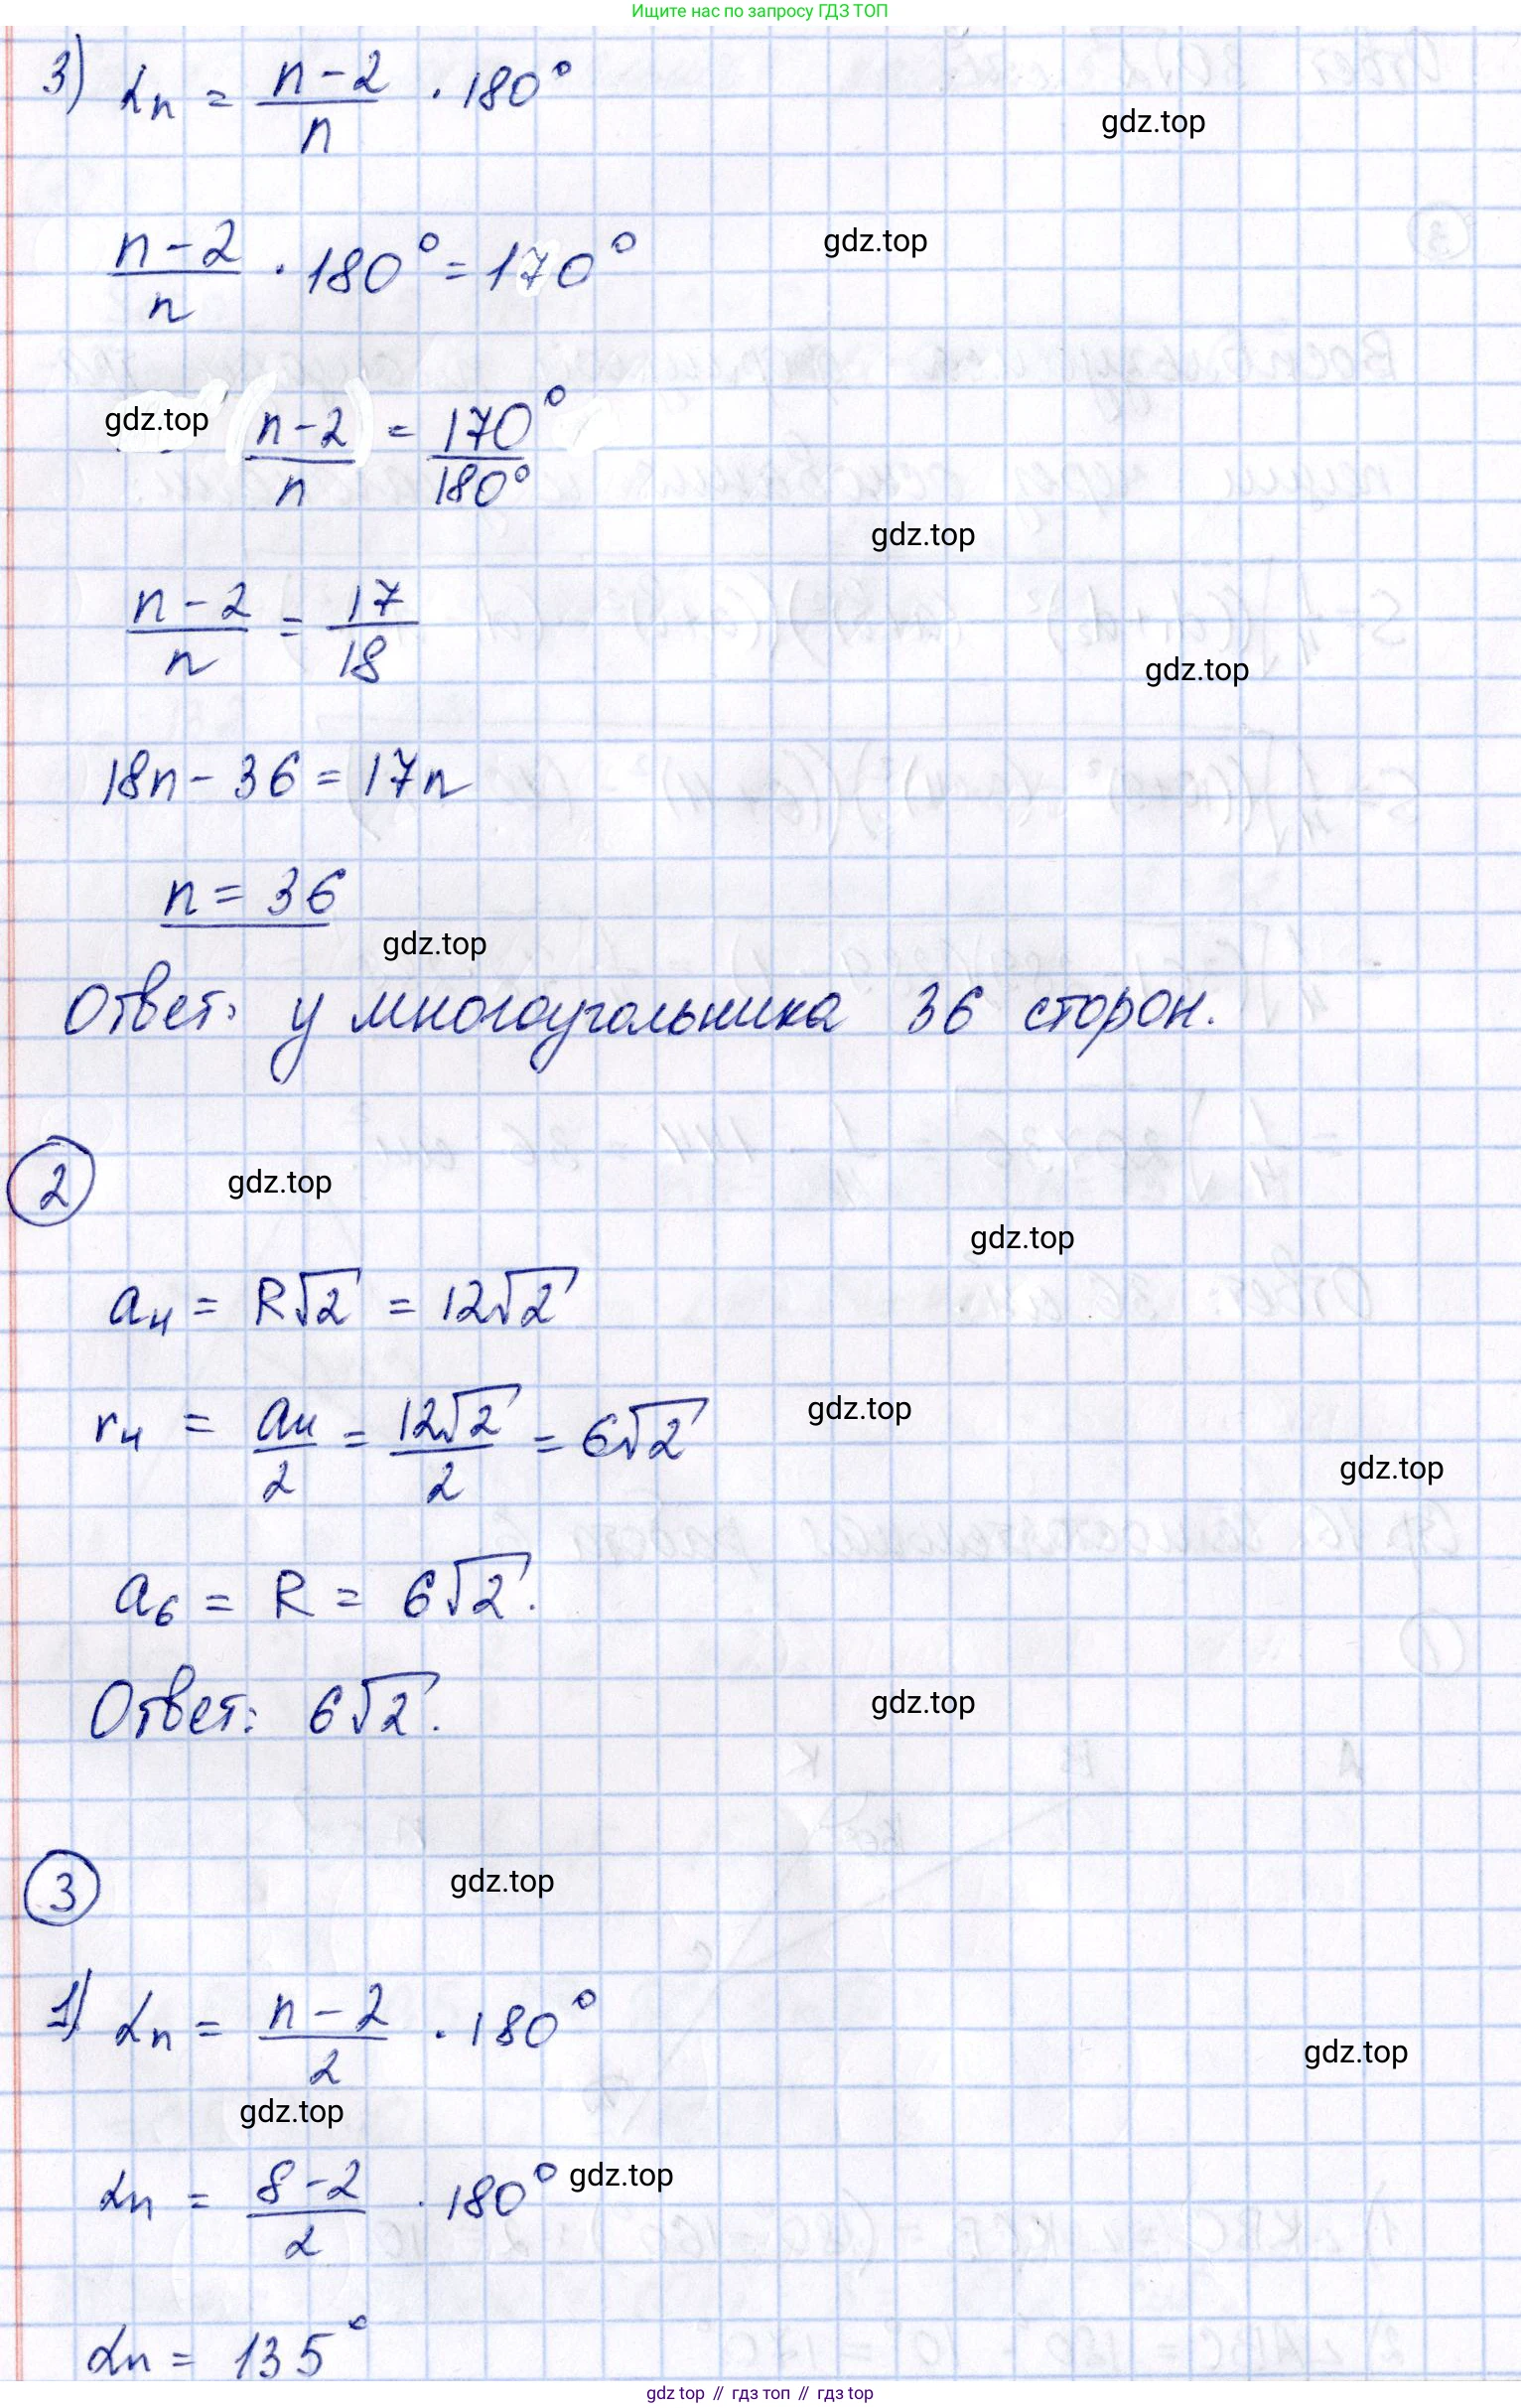 Ищите нас по запросу ГДЗ ТОП
3) αn = n-2/n · 180°
gdz.top
n-2/n · 180° = 170°
gdz.top
gdz.top (n-2)/n = 170°/180°
gdz.top
n-2/n = 17/18
gdz.top
18n - 36 = 17n
n = 36
gdz.top
Ответ: у многоугольника 36 сторон.
2
gdz.top
gdz.top
a₄ = R√2 = 12√2
r₄ = a₄/2 = 12√2/2 = 6√2
gdz.top
gdz.top
a₆ = R = 6√2.
Ответ: 6√2.
gdz.top
3
gdz.top
1) αn = n-2/2 · 180°
gdz.top
gdz.top
αn = 8-2/2 · 180°
gdz.top
αn = 135°
gdz top // гдз топ // гдз top